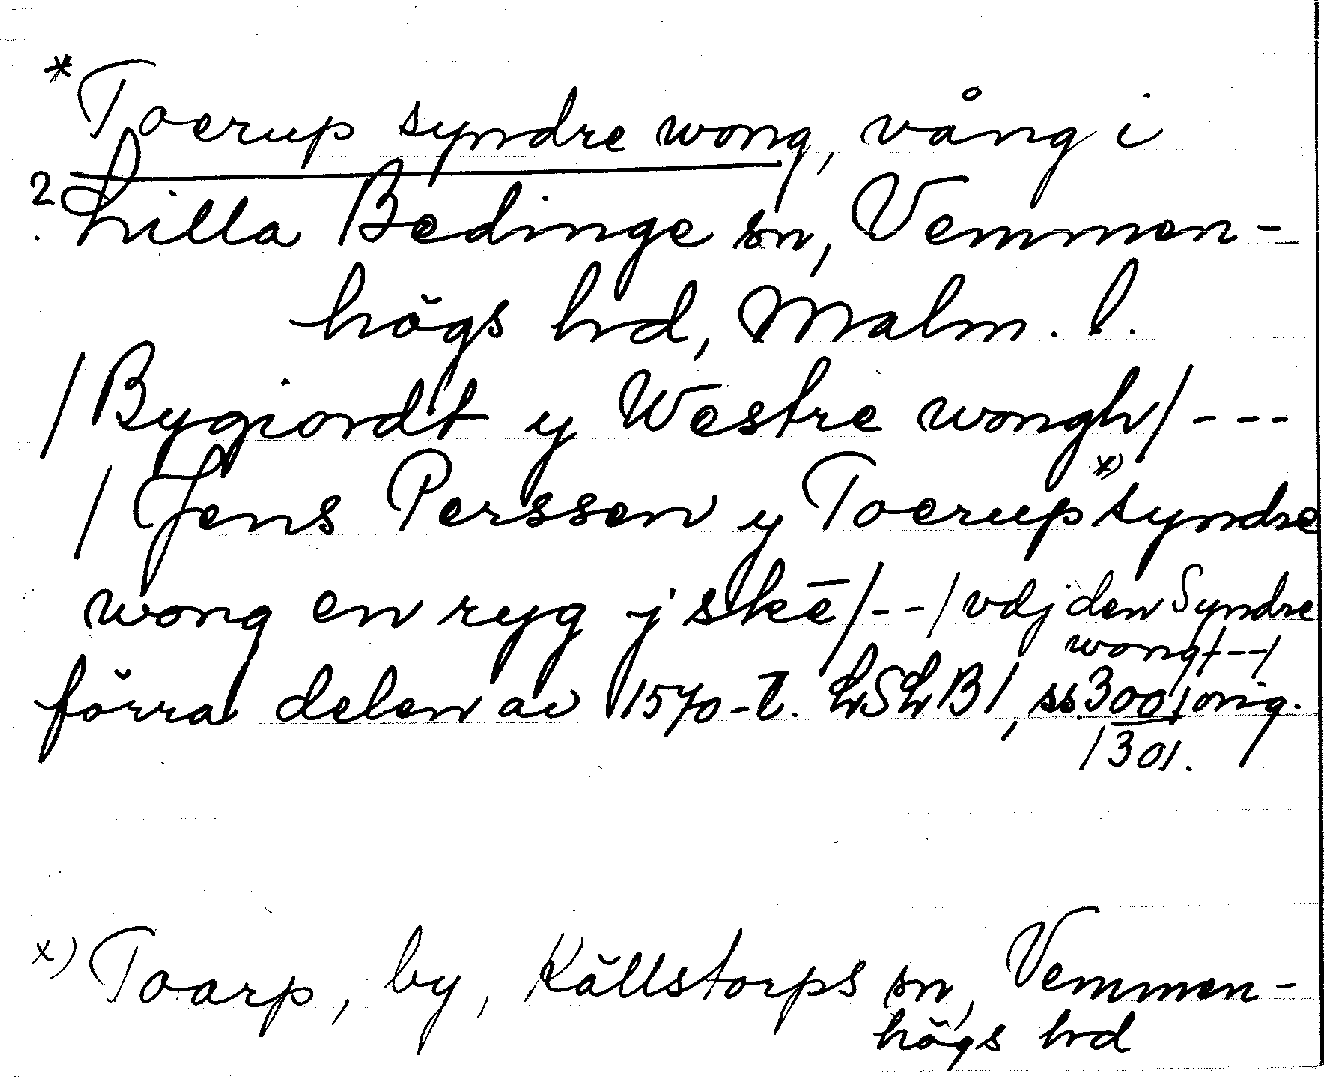 * Toerup syndre wong, vång i
2. Lilla Bedinge sn, Vemmen-
högs hd, Malm. l.
/Bygiordt y Westre wongh/ - - -
/ Jens Perssen y Toerup x) syndre
wong en ryg -j skē/ - - / vdj den Syndre
wong/ - - /
förra delen av 1570-t. LSLB1, ss. 300, orig.
/301.
x) Toarp, by, Källstorps sn, Vemmen-
högs hd